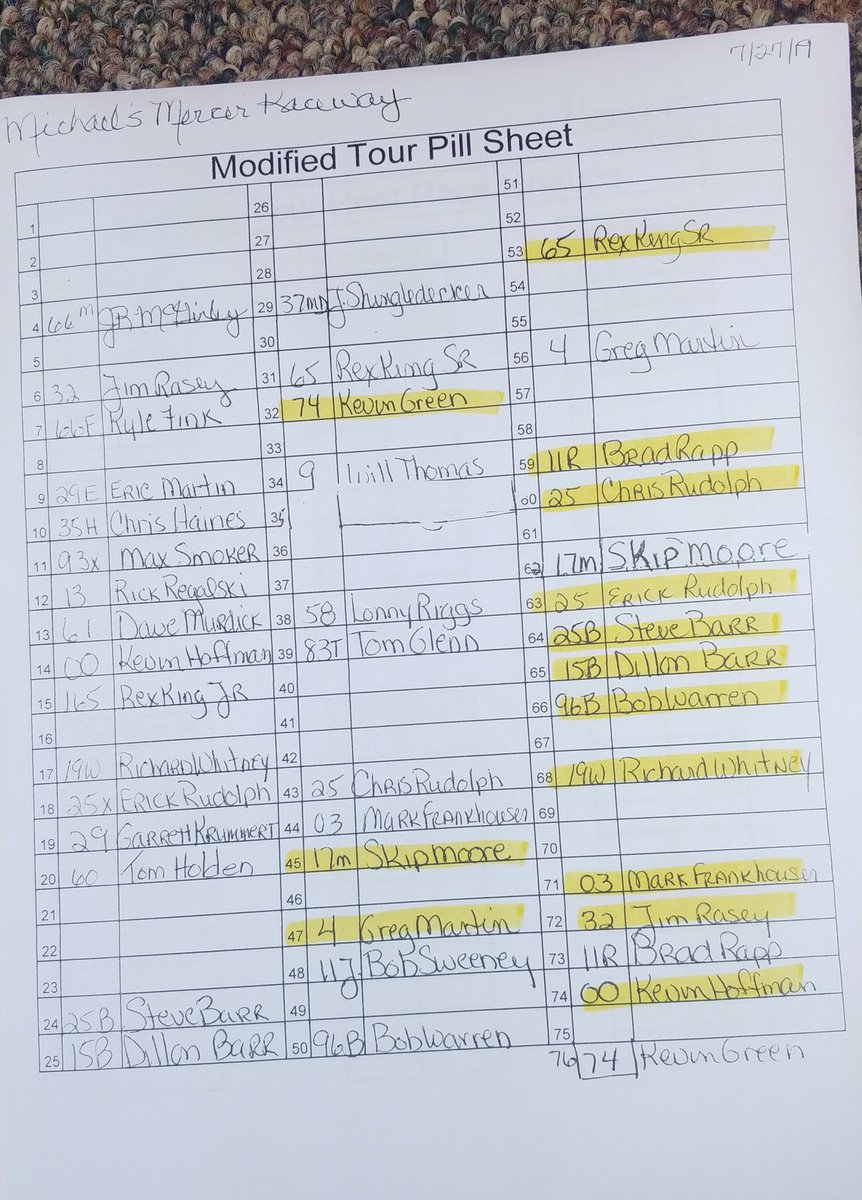 7/27/19
Michael's Mercer Raceway
Modified Tour Pill Sheet
1
2
3
4 66M JR McGinley
5
6 32 Jim Rasey
7 66F Kyle Fink
8
9 29E Eric Martin
10 35H Chris Haines
11 93x Max Smoker
12 13 Rick Regalski
13 61 Dave Murdick
14 00 Kevin Hoffman
15 165 Rex King JR
16
17 19W Richard Whitney
18 25x Erick Rudolph
19 29 Garrett Krummert
20 60 Tom Holden
21
22
23
24 25B Steve Barr
25 15B Dillan Barr
26
27
28
29 37MD J. Shingledecker
30
31 65 Rex King SR
32 74 Kevin Green
33
34 9 Will Thomas
35
36
37
38 58 Lonny Riggs
39 83T Tom Glenn
40
41
42
43 25 Chris Rudolph
44 03 Mark Frankhouser
45 17m Skip Moore
46
47 4 Greg Martin
48 11J Bob Sweeney
49
50 96B Bob Warren
51
52
53 65 Rex King SR
54
55
56 4 Greg Martin
57
58
59 11R Brad Rapp
60 25 Chris Rudolph
61
62 17m Skip Moore
63 25 Erick Rudolph
64 25B Steve Barr
65 15B Dillan Barr
66 96B Bob Warren
67
68 19W Richard Whitney
69
70
71 03 Mark Frankhouser
72 32 Jim Rasey
73 11R Brad Rapp
74 00 Kevin Hoffman
75
76 74 Kevin Green